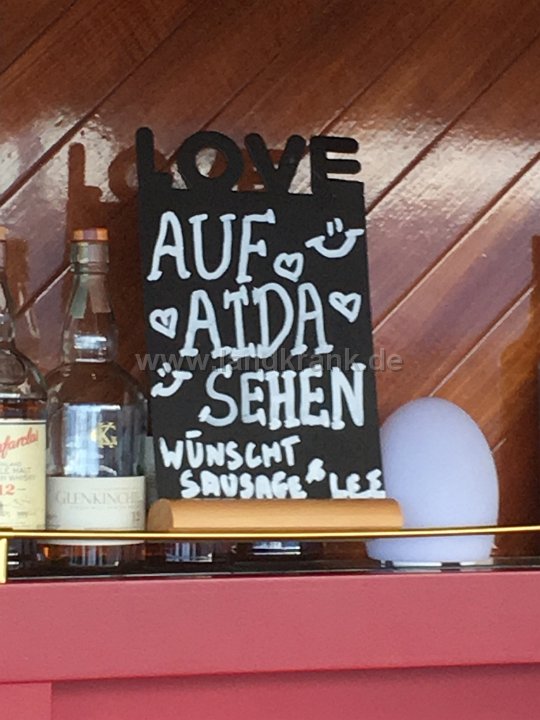 LOVE
AUF
AIDA
SEHEN
WÜNSCHT
SAUSAGE & LEE
www.landkrank.de
nfarclas
12
GLENKINCH